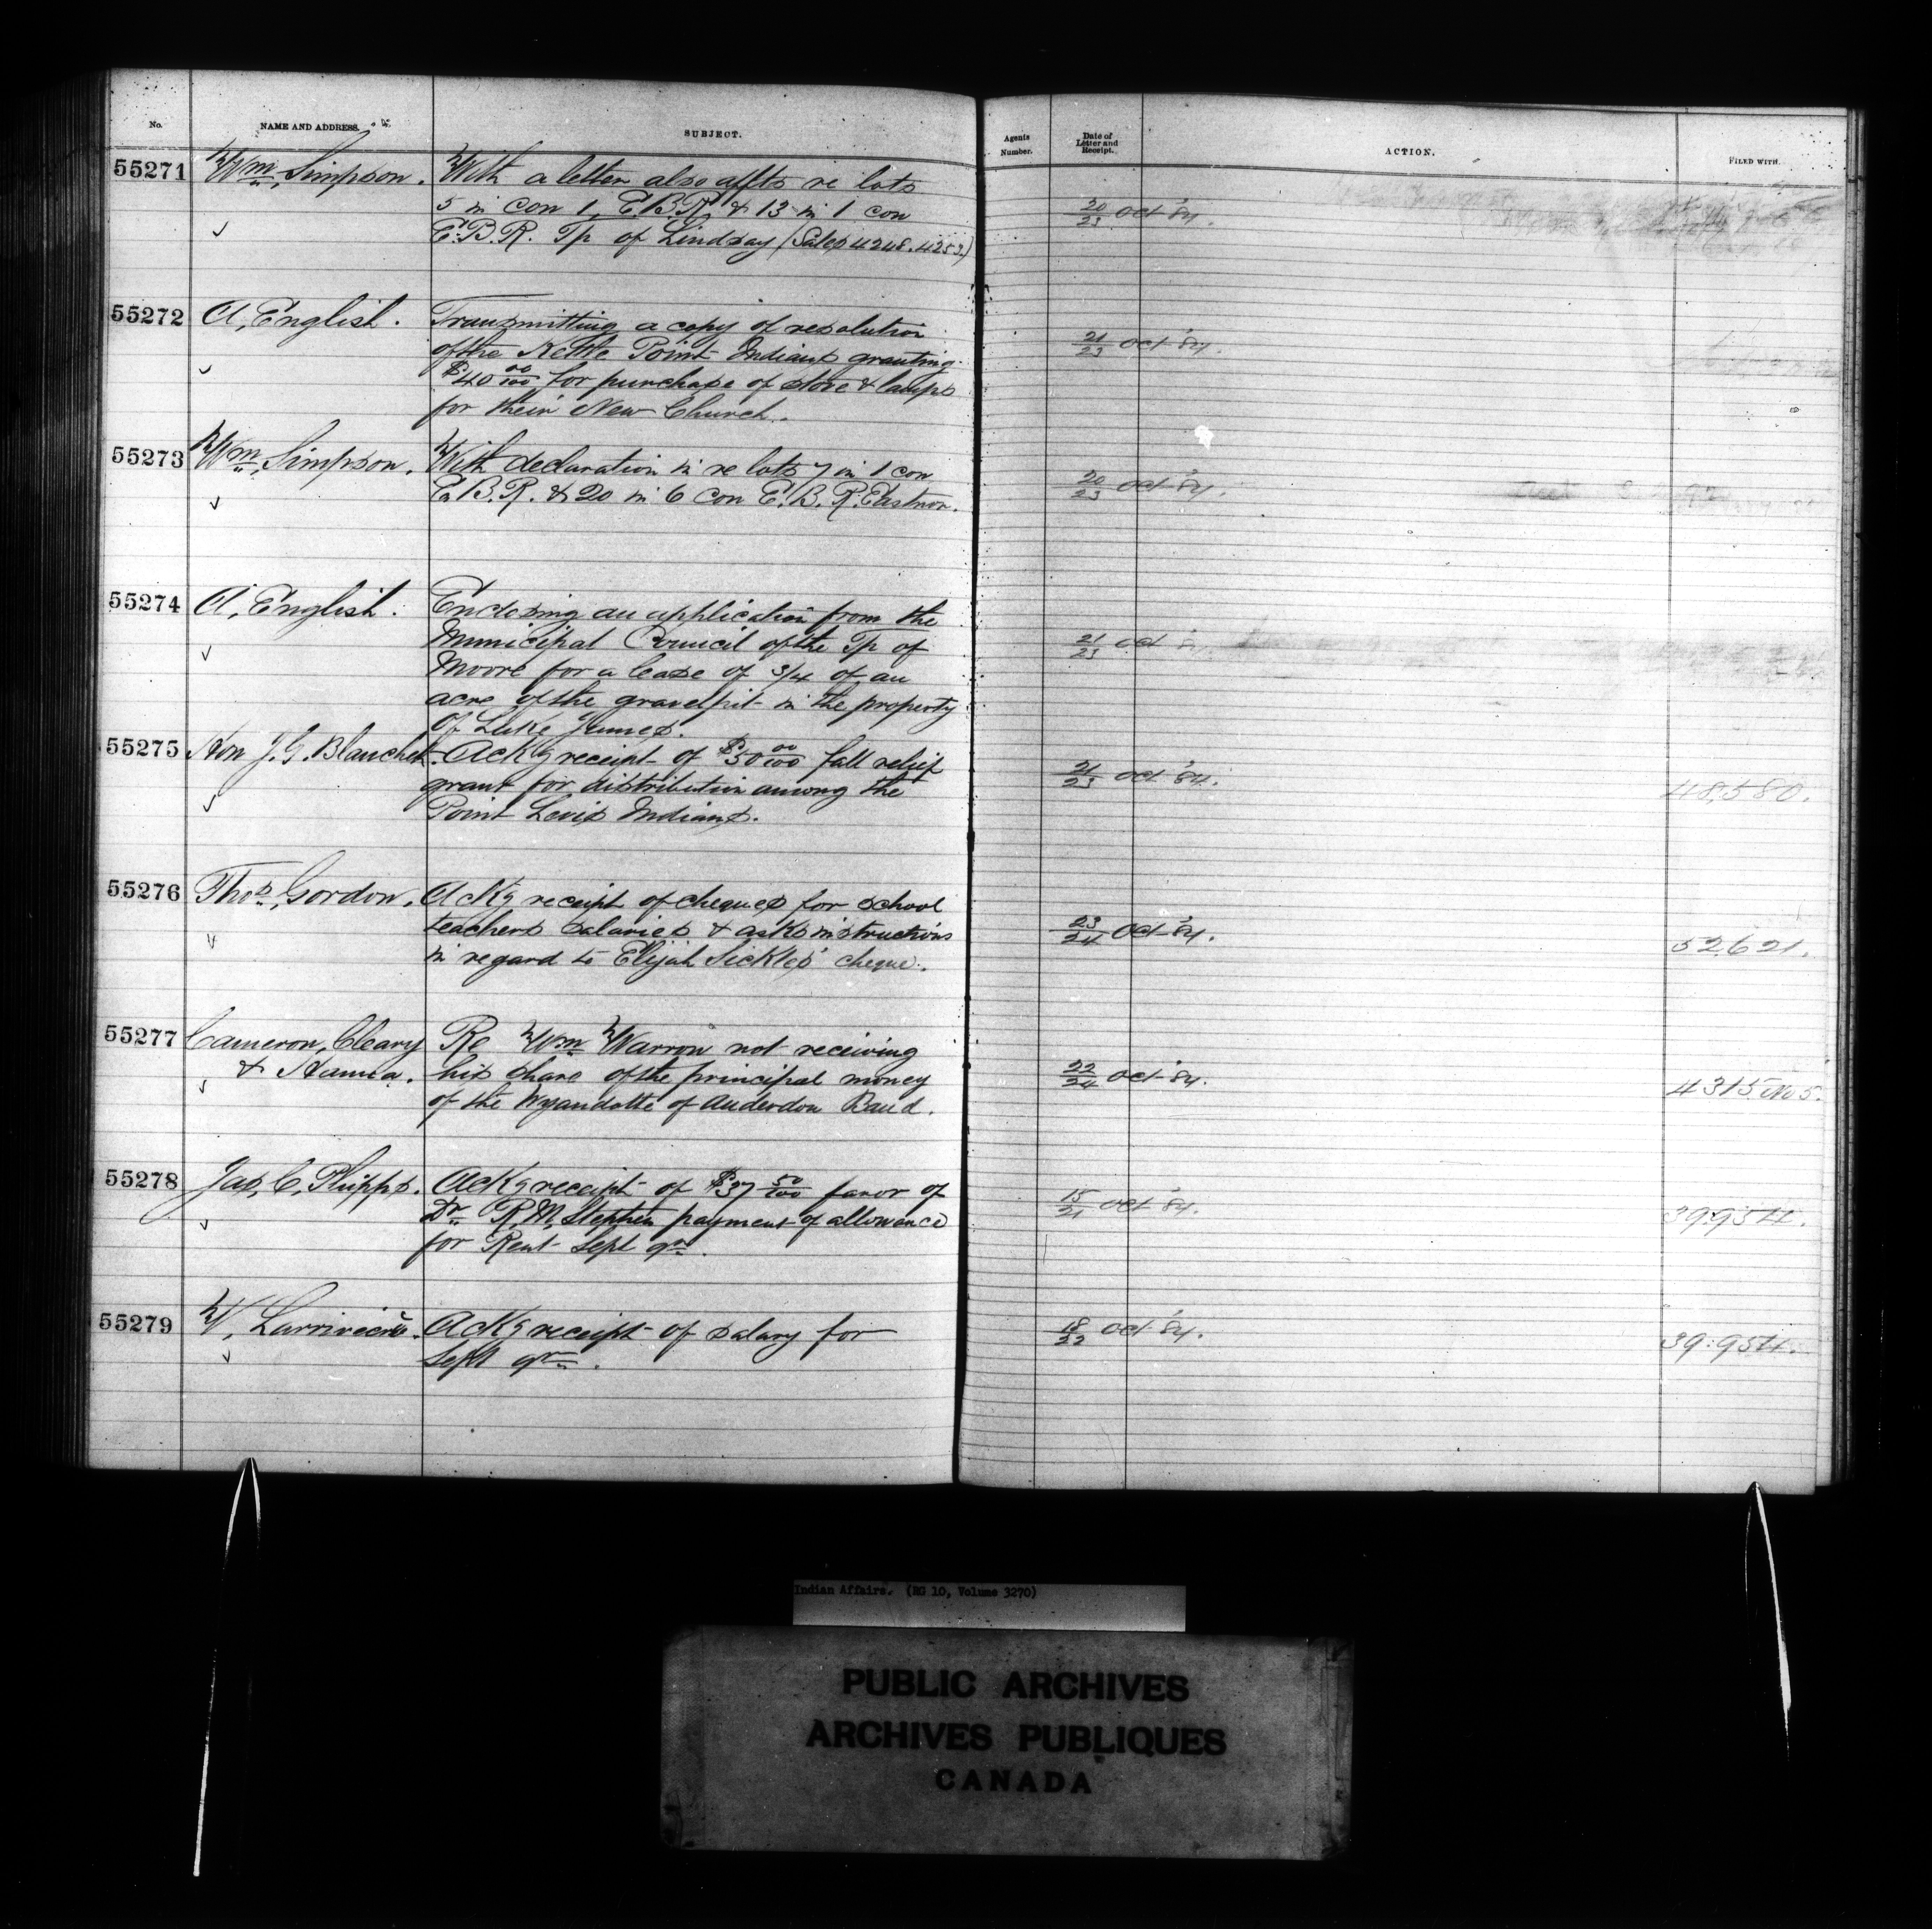 No.
NAME AND ADDRESS.
SUBJECT.
Agents Number.
Date of Letter and Receipt.
ACTION.
FILED WITH.
55271
Wm. Simpson.
With a letter also affts re lots
5 in con 1, E.B.R. & 13 in 1 con
E.B.R. Tp of Lindsay (Sales 4248.4253.)
20/23 Oct '84.
55272
A. English.
Transmitting a copy of resolution
of the Kettle Point Indians granting
$40 00/100 for purchase of stove & lamps
for their New Church.
21/23 Oct '84.
55273
Wm. Simpson.
With declaration in re lots 7 in 1 con
E.B.R. & 20 in 6 con E.B.R. Eastnor.
20/23 Oct '84.
55274
A. English.
Enclosing an application from the
Municipal Council of the Tp of
Moore for a lease of 3/4 of an
acre of the gravel pit in the property
of Luke James.
21/23 Oct
55275
Hon J.G. Blanchet.
Ackg receipt of $50 00/100 fall relief
grant for distribution among the
Point Levis Indians.
21/23 Oct '84.
48,580.
55276
Thos. Gordon.
Ackg receipt of cheques for school
teachers salaries & asks instructions
in regard to Elijah Sickles' cheque.
23/24 Oct '84.
52,621.
55277
Cameron, Cleary
& Hanna.
Re Wm. Warron not receiving
his share of the principal money
of the Wyandotte of Anderdon Band.
22/24 Oct '84.
4315 No 5.
55278
Jas. C. Phipps.
Ackg receipt of $37 50/100 favor of
Dr. R.M. Stephen payment of allowance
for Rent Sept qr.
15/21 Oct '84.
39.954.
55279
W. Larrivière.
Ackg receipt of salary for
Sept qr.
18/22 Oct '84.
39.954.
Indian Affairs. (RG 10, Volume 3270)
PUBLIC ARCHIVES
ARCHIVES PUBLIQUES
CANADA